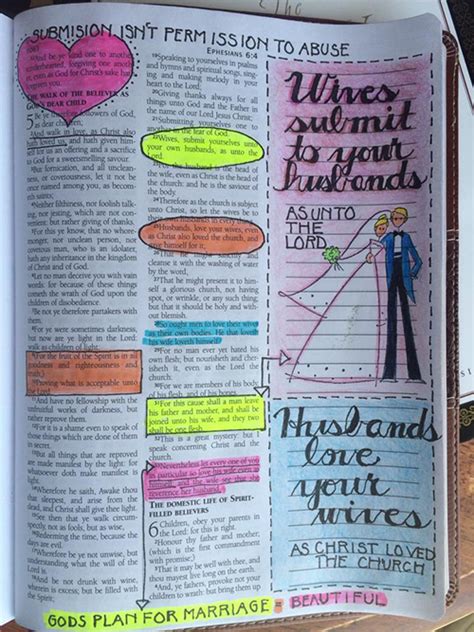 SUBMISION ISN'T PERMISSION TO ABUSE
EPHESIANS 6:4
And be ye kind one to another, tenderhearted, forgiving one another, even as God for Christ's sake hath forgiven you.
THE WALK OF THE BELIEVER AS GOD'S DEAR CHILD
and walk in love, as Christ also
hath loved us, and hath given himself
for us an offering and a sacrifice
to God for a sweetsmelling savour.
But fornication, and all uncleanness,
or covetousness, let it not be
once named among you, as becometh
saints;
Neither filthiness, nor foolish talking,
nor jesting, which are not convenient:
but rather giving of thanks.
For this ye know, that no whoremonger,
nor unclean person, nor
covetous man, who is an idolater,
hath any inheritance in the kingdom
of Christ and of God.
Let no man deceive you with vain
words: for because of these things
cometh the wrath of God upon the
children of disobedience.
Be not ye therefore partakers
with them.
For ye were sometimes darkness,
but now are ye light in the Lord:
walk as children of light:
(For the fruit of the Spirit is in all
goodness and righteousness and
truth;)
Proving what is acceptable unto the
Lord.
And have no fellowship with the
unfruitful works of darkness, but
rather reprove them.
For it is a shame even to speak of
those things which are done of them
in secret.
But all things that are reproved
are made manifest by the light: for
whatsoever doth make manifest is
light.
Wherefore he saith, Awake thou
that sleepest, and arise from the
dead, and Christ shall give thee light.
See then that ye walk circumspectly,
not as fools, but as wise,
Redeeming the time, because the
days are evil.
Wherefore be ye not unwise, but
understanding what the will of the
Lord is.
And be not drunk with wine,
wherein is excess; but be filled with
the Spirit;
Speaking to yourselves in psalms
and hymns and spiritual songs, singing
and making melody in your
heart to the Lord;
Giving thanks always for all
things unto God and the Father in
the name of our Lord Jesus Christ;
Submitting yourselves one to
another in the fear of God.
Wives, submit yourselves unto
your own husbands, as unto the
Lord.
For the husband is the head of
the wife, even as Christ is the head of
the church: and he is the saviour of
the body.
Therefore as the church is subject
unto Christ, so let the wives be to
their own husbands in every thing.
Husbands, love your wives, even
as Christ also loved the church, and
gave himself for it;
That he might sanctify and
cleanse it with the washing of water
by the word,
That he might present it to himself
a glorious church, not having
spot, or wrinkle, or any such thing;
but that it should be holy and without
blemish.
So ought men to love their wives
as their own bodies. He that loveth
his wife loveth himself.
For no man ever yet hated his
own flesh; but nourisheth and cherisheth
it, even as the Lord the
church:
For we are members of his body,
of his flesh, and of his bones.
For this cause shall a man leave
his father and mother, and shall be
joined unto his wife, and they two
shall be one flesh.
This is a great mystery: but I
speak concerning Christ and the
church.
Nevertheless let every one of you
in particular so love his wife even as
himself; and the wife see that she
reverence her husband.
THE DOMESTIC LIFE OF SPIRIT-
FILLED BELIEVERS
6 Children, obey your parents in
the Lord: for this is right.
Honour thy father and mother;
(which is the first commandment
with promise;)
That it may be well with thee, and
thou mayest live long on the earth.
Wives
submit
to your
husbands
AS UNTO
THE
LORD
Husbands
love
your
wives
AS CHRIST LOVED
THE CHURCH
GODS PLAN FOR MARRIAGE IS BEAUTIFUL